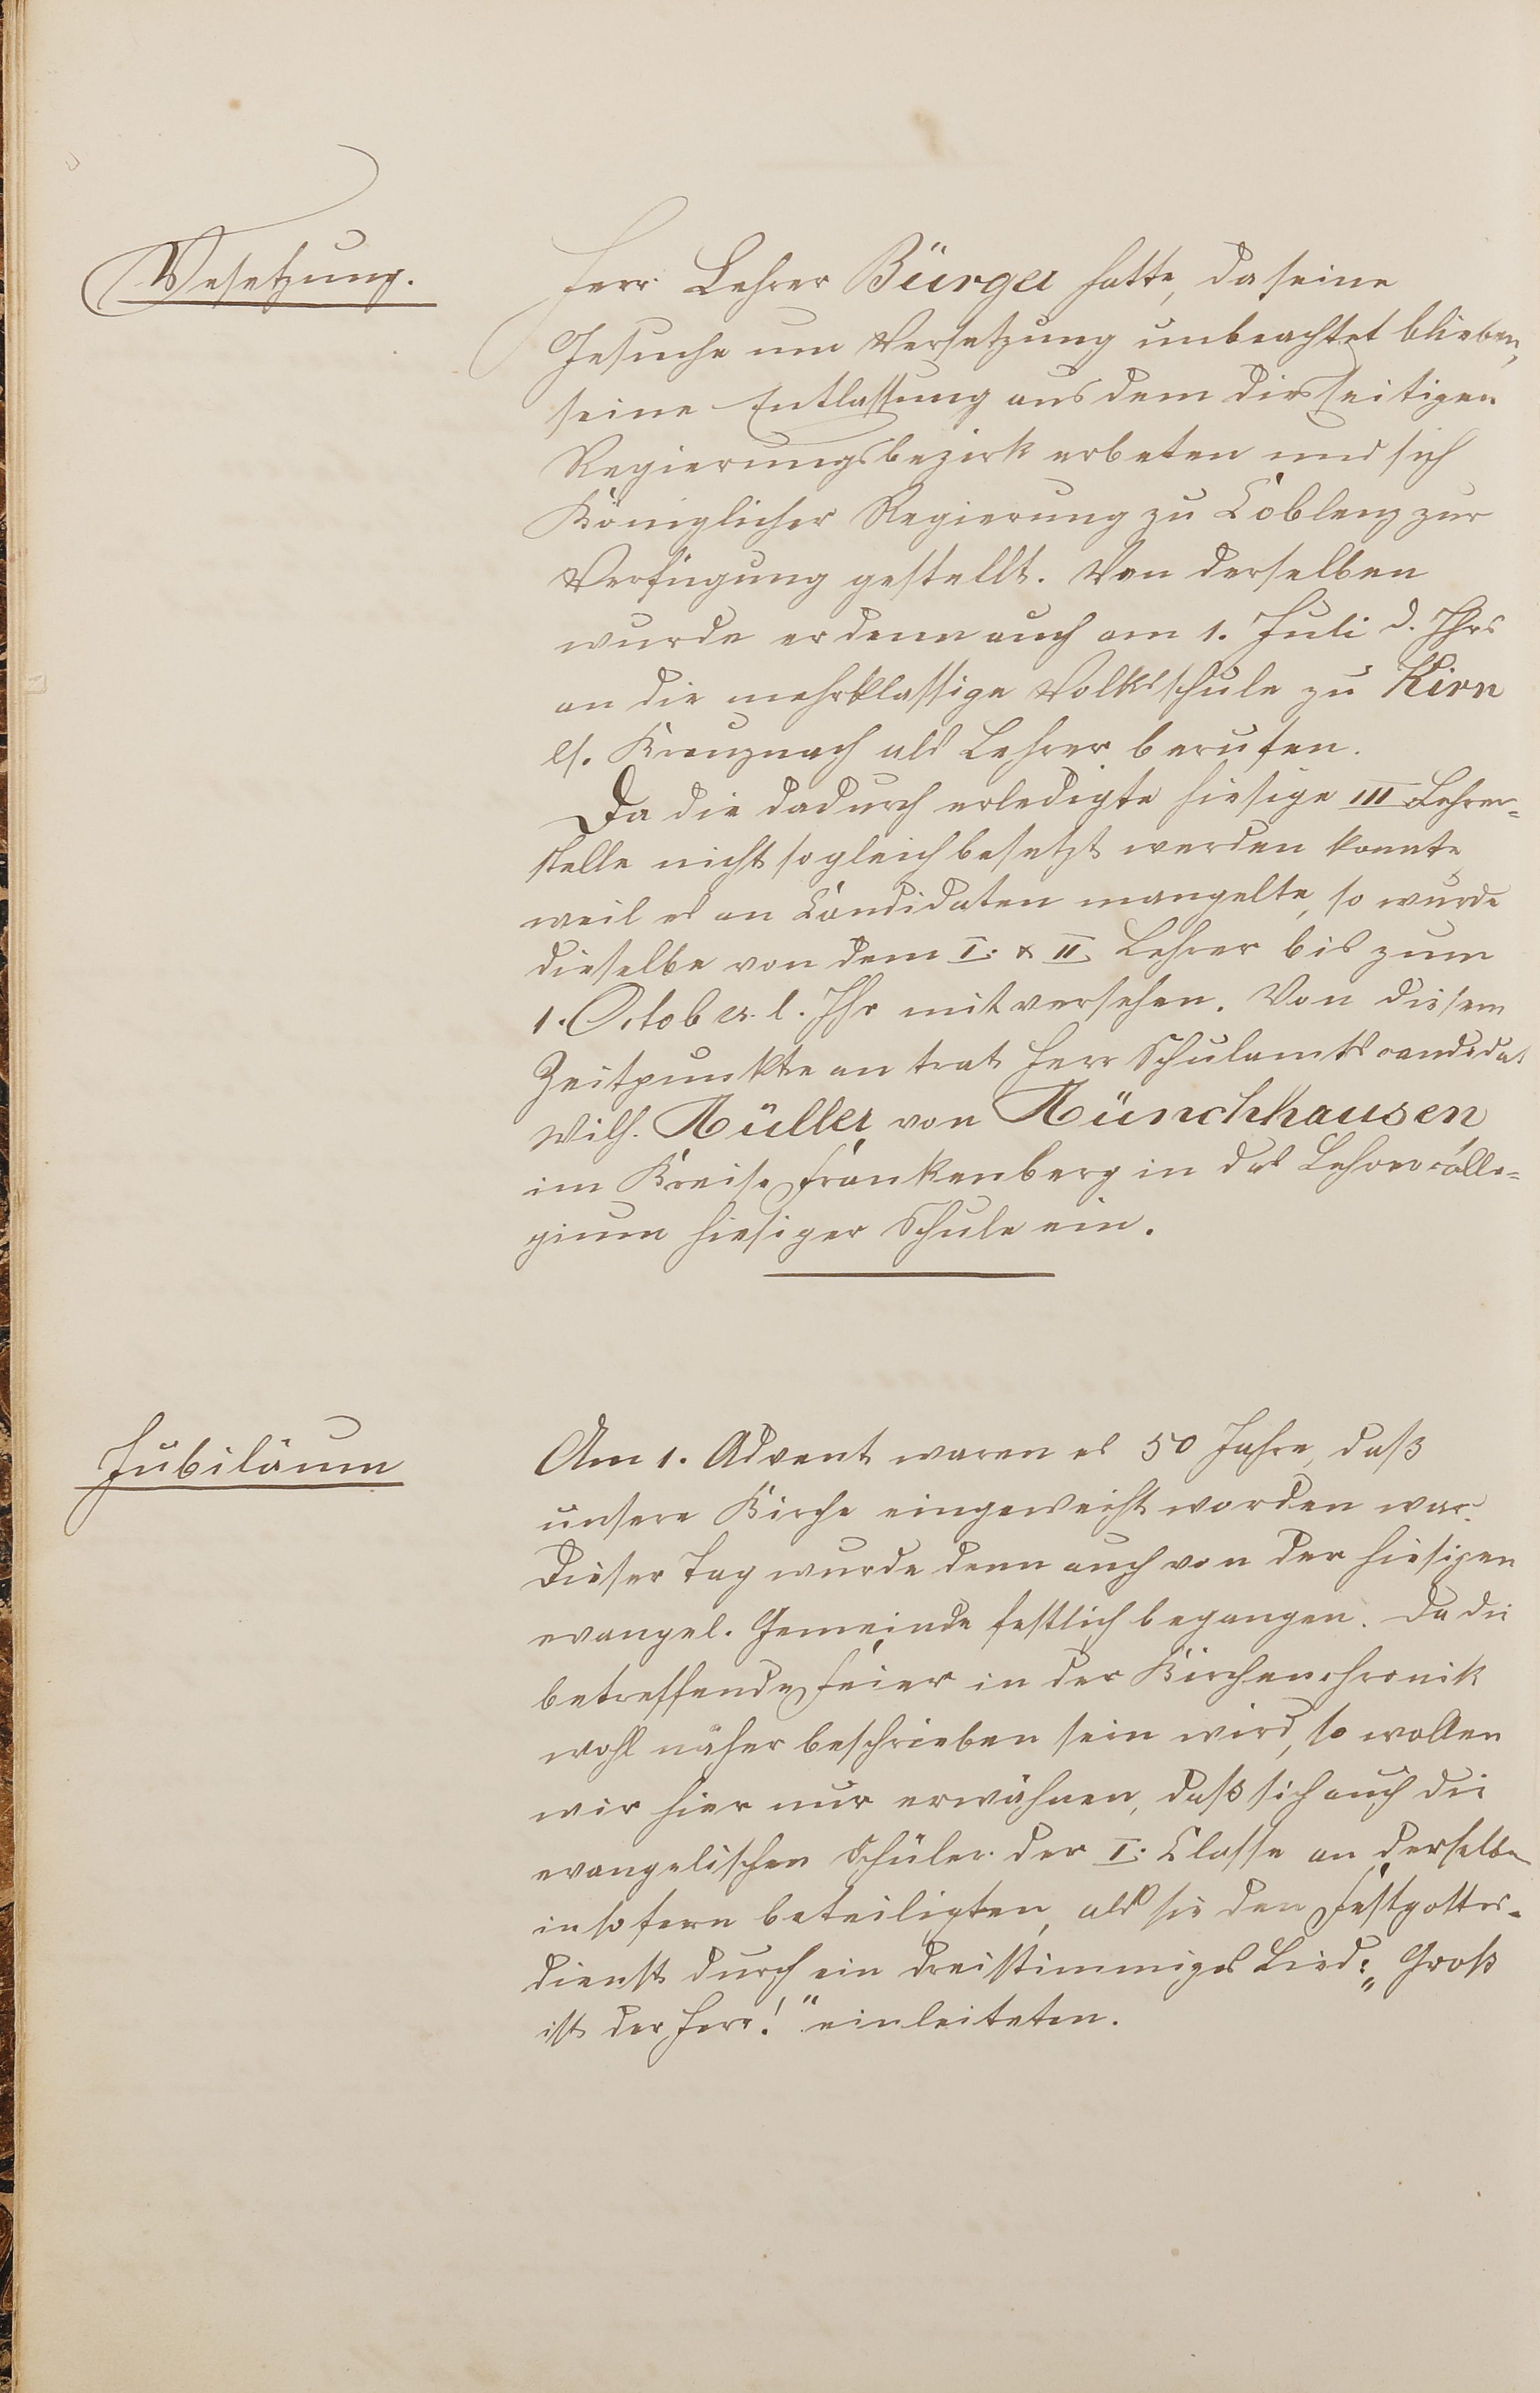 Vesetzung.
Herr Lehrer Bürger hatte, da seine
Gesuche um Versetzung unbeachtet blieben,
seine Entlassung aus dem diesseitigen
Regierungsbezirk erbeten und sich
Königlicher Regierung zu Coblenz zur
Verfügung gestellt. Von derselben
wurde er denn auch am 1. Juli d. Jhrs
an die mehrklassige Volksschule zu Kirn
Kreuznach als Lehrer berufen.
Da die dadurch erledigte hiesige III Lehrer-
stelle nicht sogleich besetzt werden konnte,
weil es an Candidaten mangelte, so wurde
dieselbe von dem I. & II. Lehrer bis zum
1. October l. Jhr mit versehen. Von diesem
Zeitpunkte an trat Herr Schulamtscandidat
Wilh. Müller von Münchhausen
im Kreise Frankenberg in das Lehrercolle-
gium hiesiger Schule ein.
Jubiläum
Am 1. Advent waren es 50 Jahre, daß
unsere Kirche eingeweiht worden war.
Dieser Tag wurde denn auch von der hiesigen
evangel. Gemeinde festlich begangen. Da die
betreffende Feier in der Kirchenchronik
wohl näher beschrieben sein wird, so wollen
wir hier nur erwähnen, daß sich auch die
evangelischen Schüler der I. Classe an derselben
insofern beteiligten, als sie den Festgottes-
dienst durch ein dreistimmiges Lied: „Groß
ist der Herr!" einleiteten.